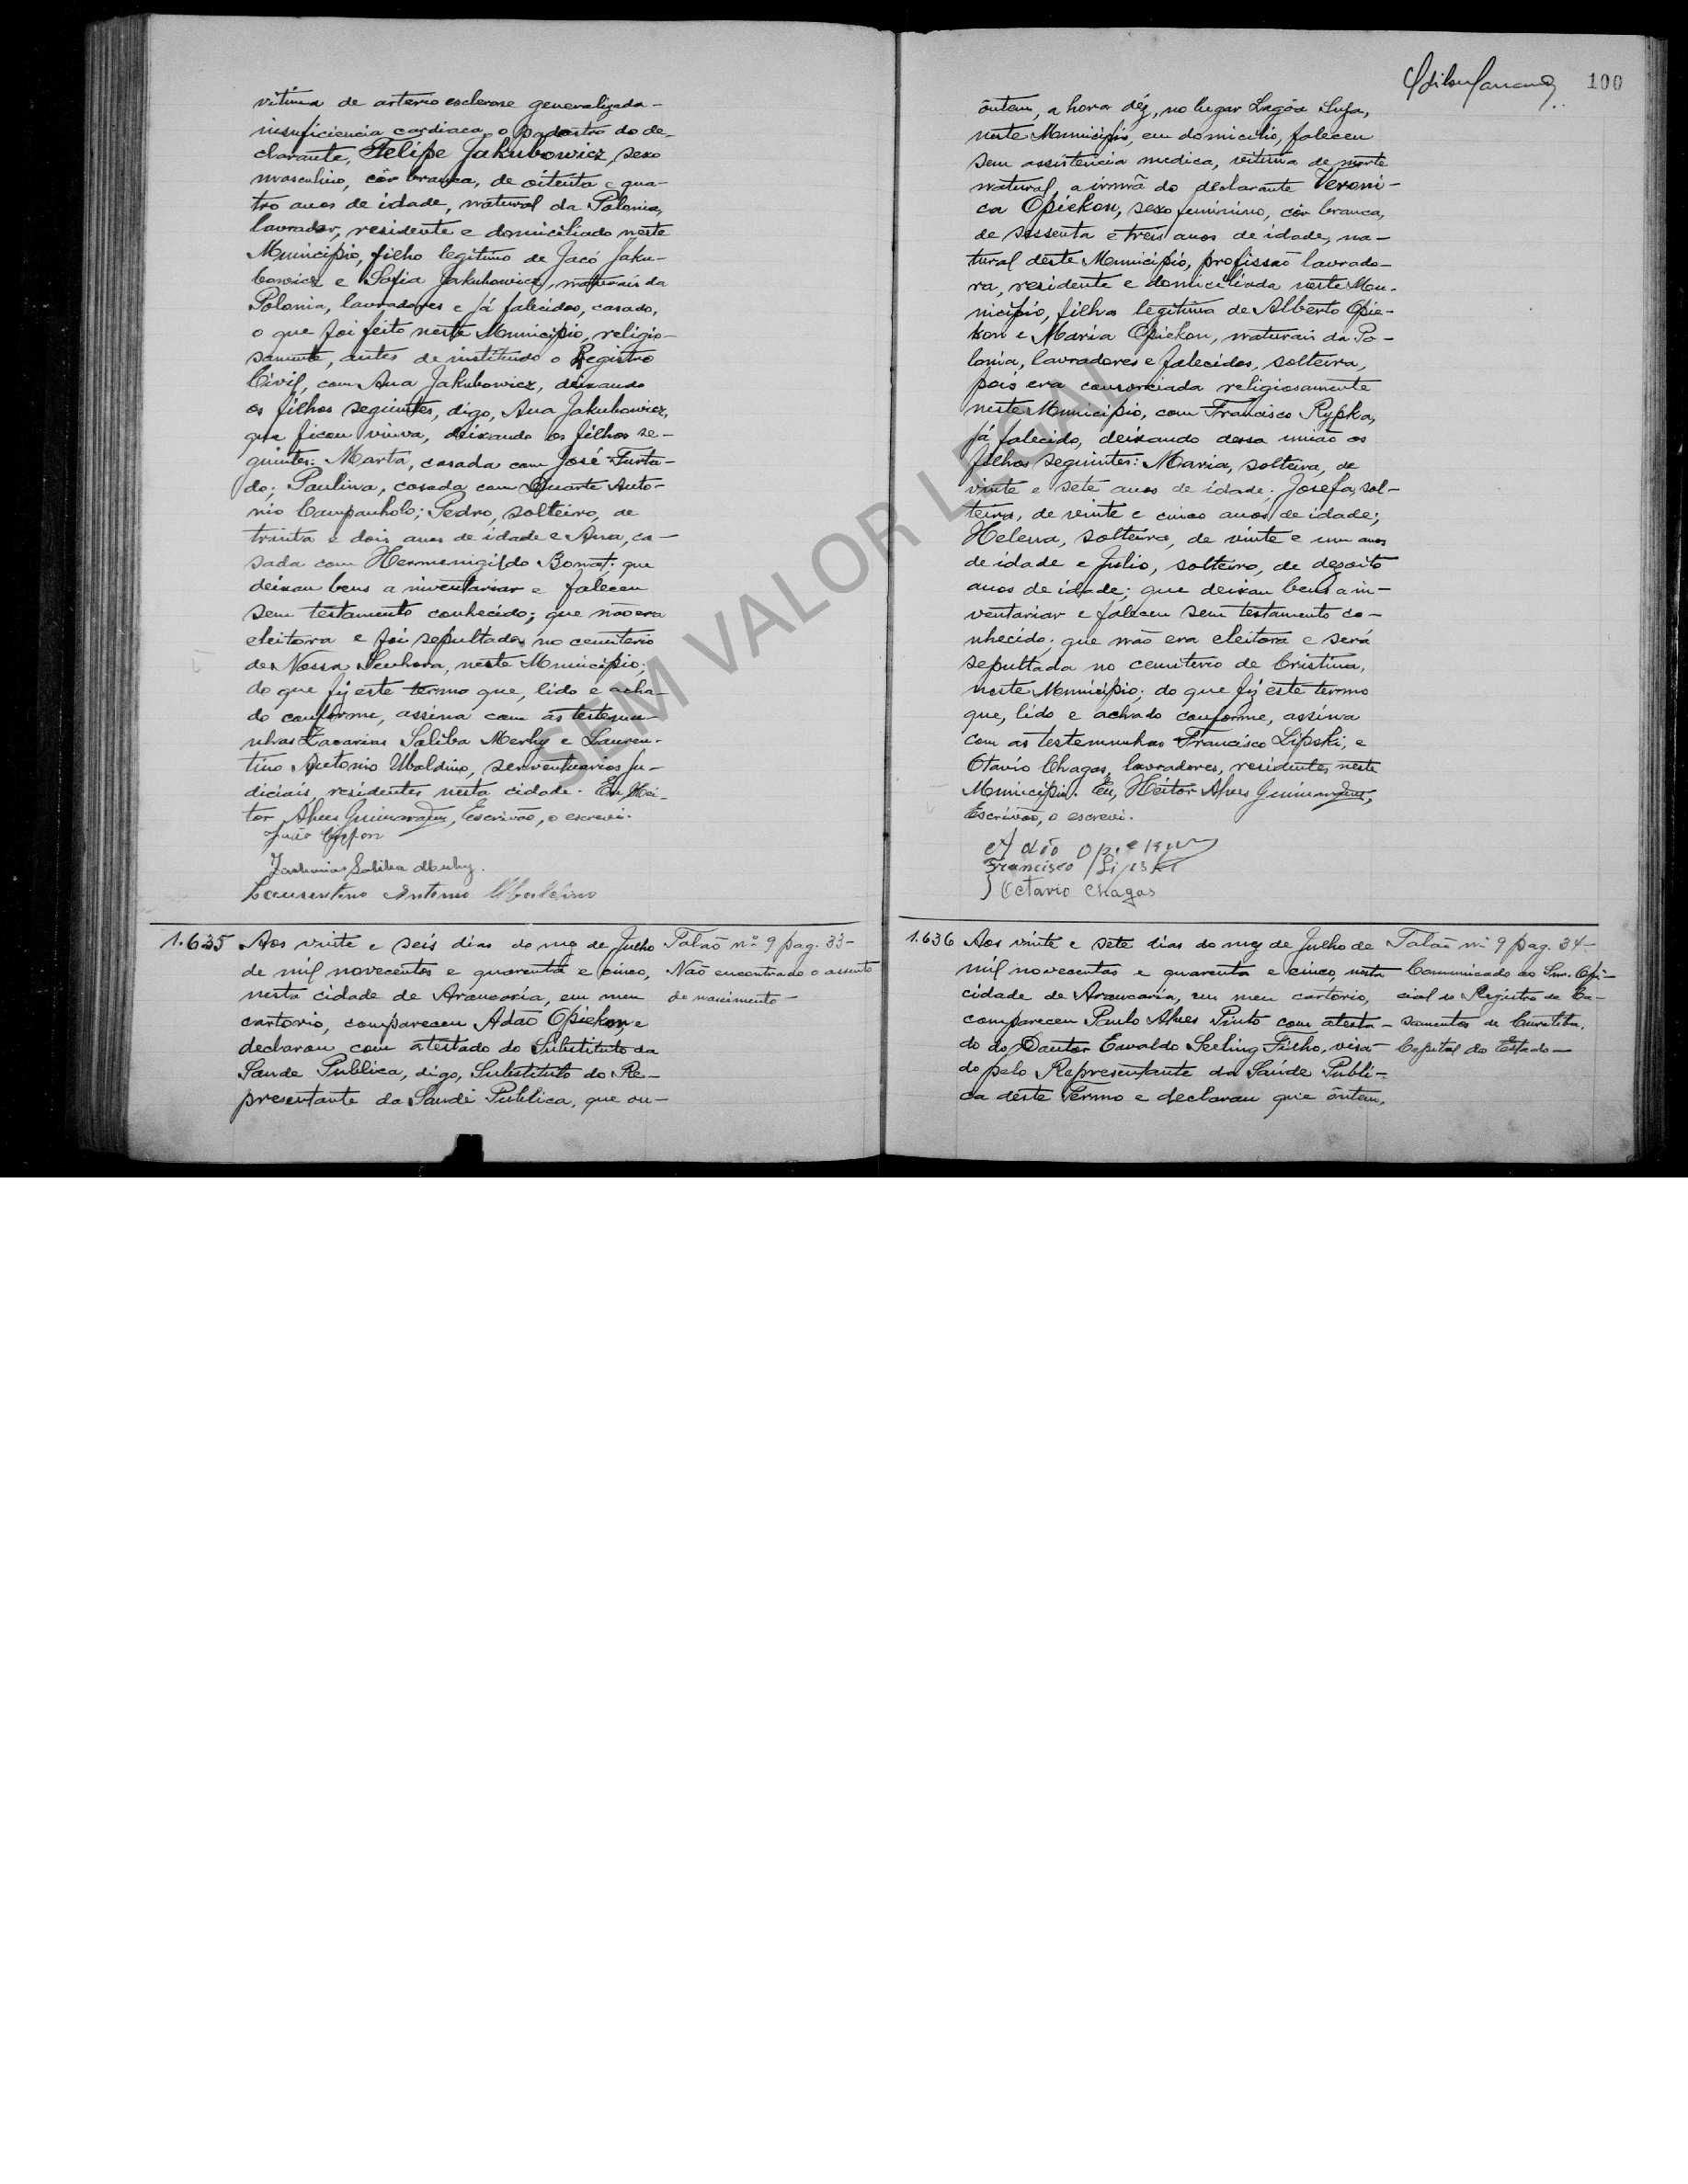 vitima de arterio esclerose generalizada-
insuficiencia cardiaca, o padastro do de-
clarante, Felipe Jakubowicz, sexo
masculino, côr branca, de oitenta e qua-
tro anos de idade, natural da Polonia,
lavrador, residente e domiciliado neste
Municipio, filho legitimo de Jacó Jaku-
bowicz e Sofia Jakubowicz, naturais da
Polonia, lavradores e já falecidos, casado,
o que foi feito neste Municipio, religio-
samente, antes de instituido o Registro
Civil, com Ana Jakubowicz, deixando
os filhos seguintes, digo, Ana Jakubowicz,
que ficou viuva, deixando os filhos se-
guintes: Marta, casada com José Furta-
do; Paulina, casada com Duarte Anto-
nio Campanholo; Pedro, solteiro, de
trinta e dois anos de idade e Ana, ca-
sada com Hermenigildo Bonat; que
deixou bens a inventariar e faleceu
sem testamento conhecido; que não era
eleitora e foi sepultado no cemiterio
de Nossa Senhora, neste Municipio;
do que fiz este termo que, lido e acha-
do conforme, assina com as testemu-
nhas Zacarias Saliba Merhy e Lauren-
tino Antonio Ubaldino, serventuarios ju-
diciais, residentes nesta cidade. Eu, Hei-
tor Alves Guimarães, Escrivão, o escrevi.
João
Zacharias Saliba Merhy.
Laurentino Antonio Ubaldino
1.635 Aos vinte e seis dias do mez de Julho Talão nº 9 pag. 33-
de mil novecentos e quarenta e cinco, Não encontrado o assento
nesta cidade de Araucaria, em meu de nascimento-
cartorio, compareceu Adão Opiekon e
declarou com atestado do Substituto da
Saude Publica, digo, Substituto do Re-
presentante da Saude Publica, que on-
100
ôntem, a hora déz, no lugar Lagôa Suja,
neste Municipio, em domicilio, faleceu
sem assistencia medica, vitima de morte
natural, a irmã do declarante Veroni-
ca Opiekon, sexo feminino, côr branca,
de sessenta e treis anos de idade, na-
tural deste Municipio, profissão lavrado-
ra, residente e domiciliada neste Mu-
nicipio, filha legitima de Alberto Opie-
kon e Maria Opiekon, naturais da Po-
lonia, lavradores e falecidos, solteira,
pois era consorciada religiosamente
neste Municipio, com Francisco Rypka,
já falecido, deixando dessa união os
filhos seguintes: Maria, solteira, de
vinte e sete anos de idade; Josefa, sol-
teira, de vinte e cinco anos de idade;
Helena, solteira, de vinte e um anos
de idade e Julio, solteiro, de dezoito
anos de idade; que deixou bens a in-
ventariar e faleceu sem testamento co-
nhecido; que não era eleitora e será
sepultada no cemiterio de Cristina,
neste Municipio; do que fiz este termo
que, lido e achado conforme, assina
com as testemunhas Francisco Lipski, e
Otavio Chagas, lavradores, residentes neste
Municipio. Eu, Heitor Alves Guimarães,
Escrivão, o escrevi.
Adão Opiekon
Francisco Lipski
Octavio Chagas
1.636 Aos vinte e sete dias do mez de Julho de Talão nº 9 pag. 34-
mil novecentos e quarenta e cinco, nesta Communicado ao Snr. Ofi-
cidade de Araucaria, em meu cartorio, cial do Registro de Ca-
compareceu Paulo Alves Pinto com atesta- samentos de Curitiba,
do do Doutor Ewaldo Seeling Filho, visa- Capital do Estado-
do pelo Representante da Saúde Publi-
ca deste Termo e declarou que ôntem,
SEM VALOR LEGAL